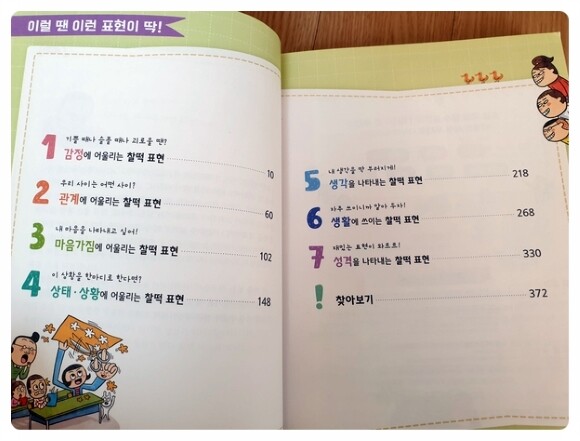 이럴 땐 이런 표현이 딱!
1
기쁠 때나 슬플 때나 괴로울 땐?
감정에 어울리는 찰떡 표현 10
2
우리 사이는 어떤 사이?
관계에 어울리는 찰떡 표현 60
3
내 마음을 나타내고 싶어!
마음가짐에 어울리는 찰떡 표현 102
4
이 상황을 한마디로 한다면?
상태·상황에 어울리는 찰떡 표현 148
5
내 생각을 딱 부러지게!
생각을 나타내는 찰떡 표현 218
6
자주 쓰이니까 알아 두자!
생활에 쓰이는 찰떡 표현 268
7
재밌는 표현이 와르르!
성격을 나타내는 찰떡 표현 330
!
찾아보기 372